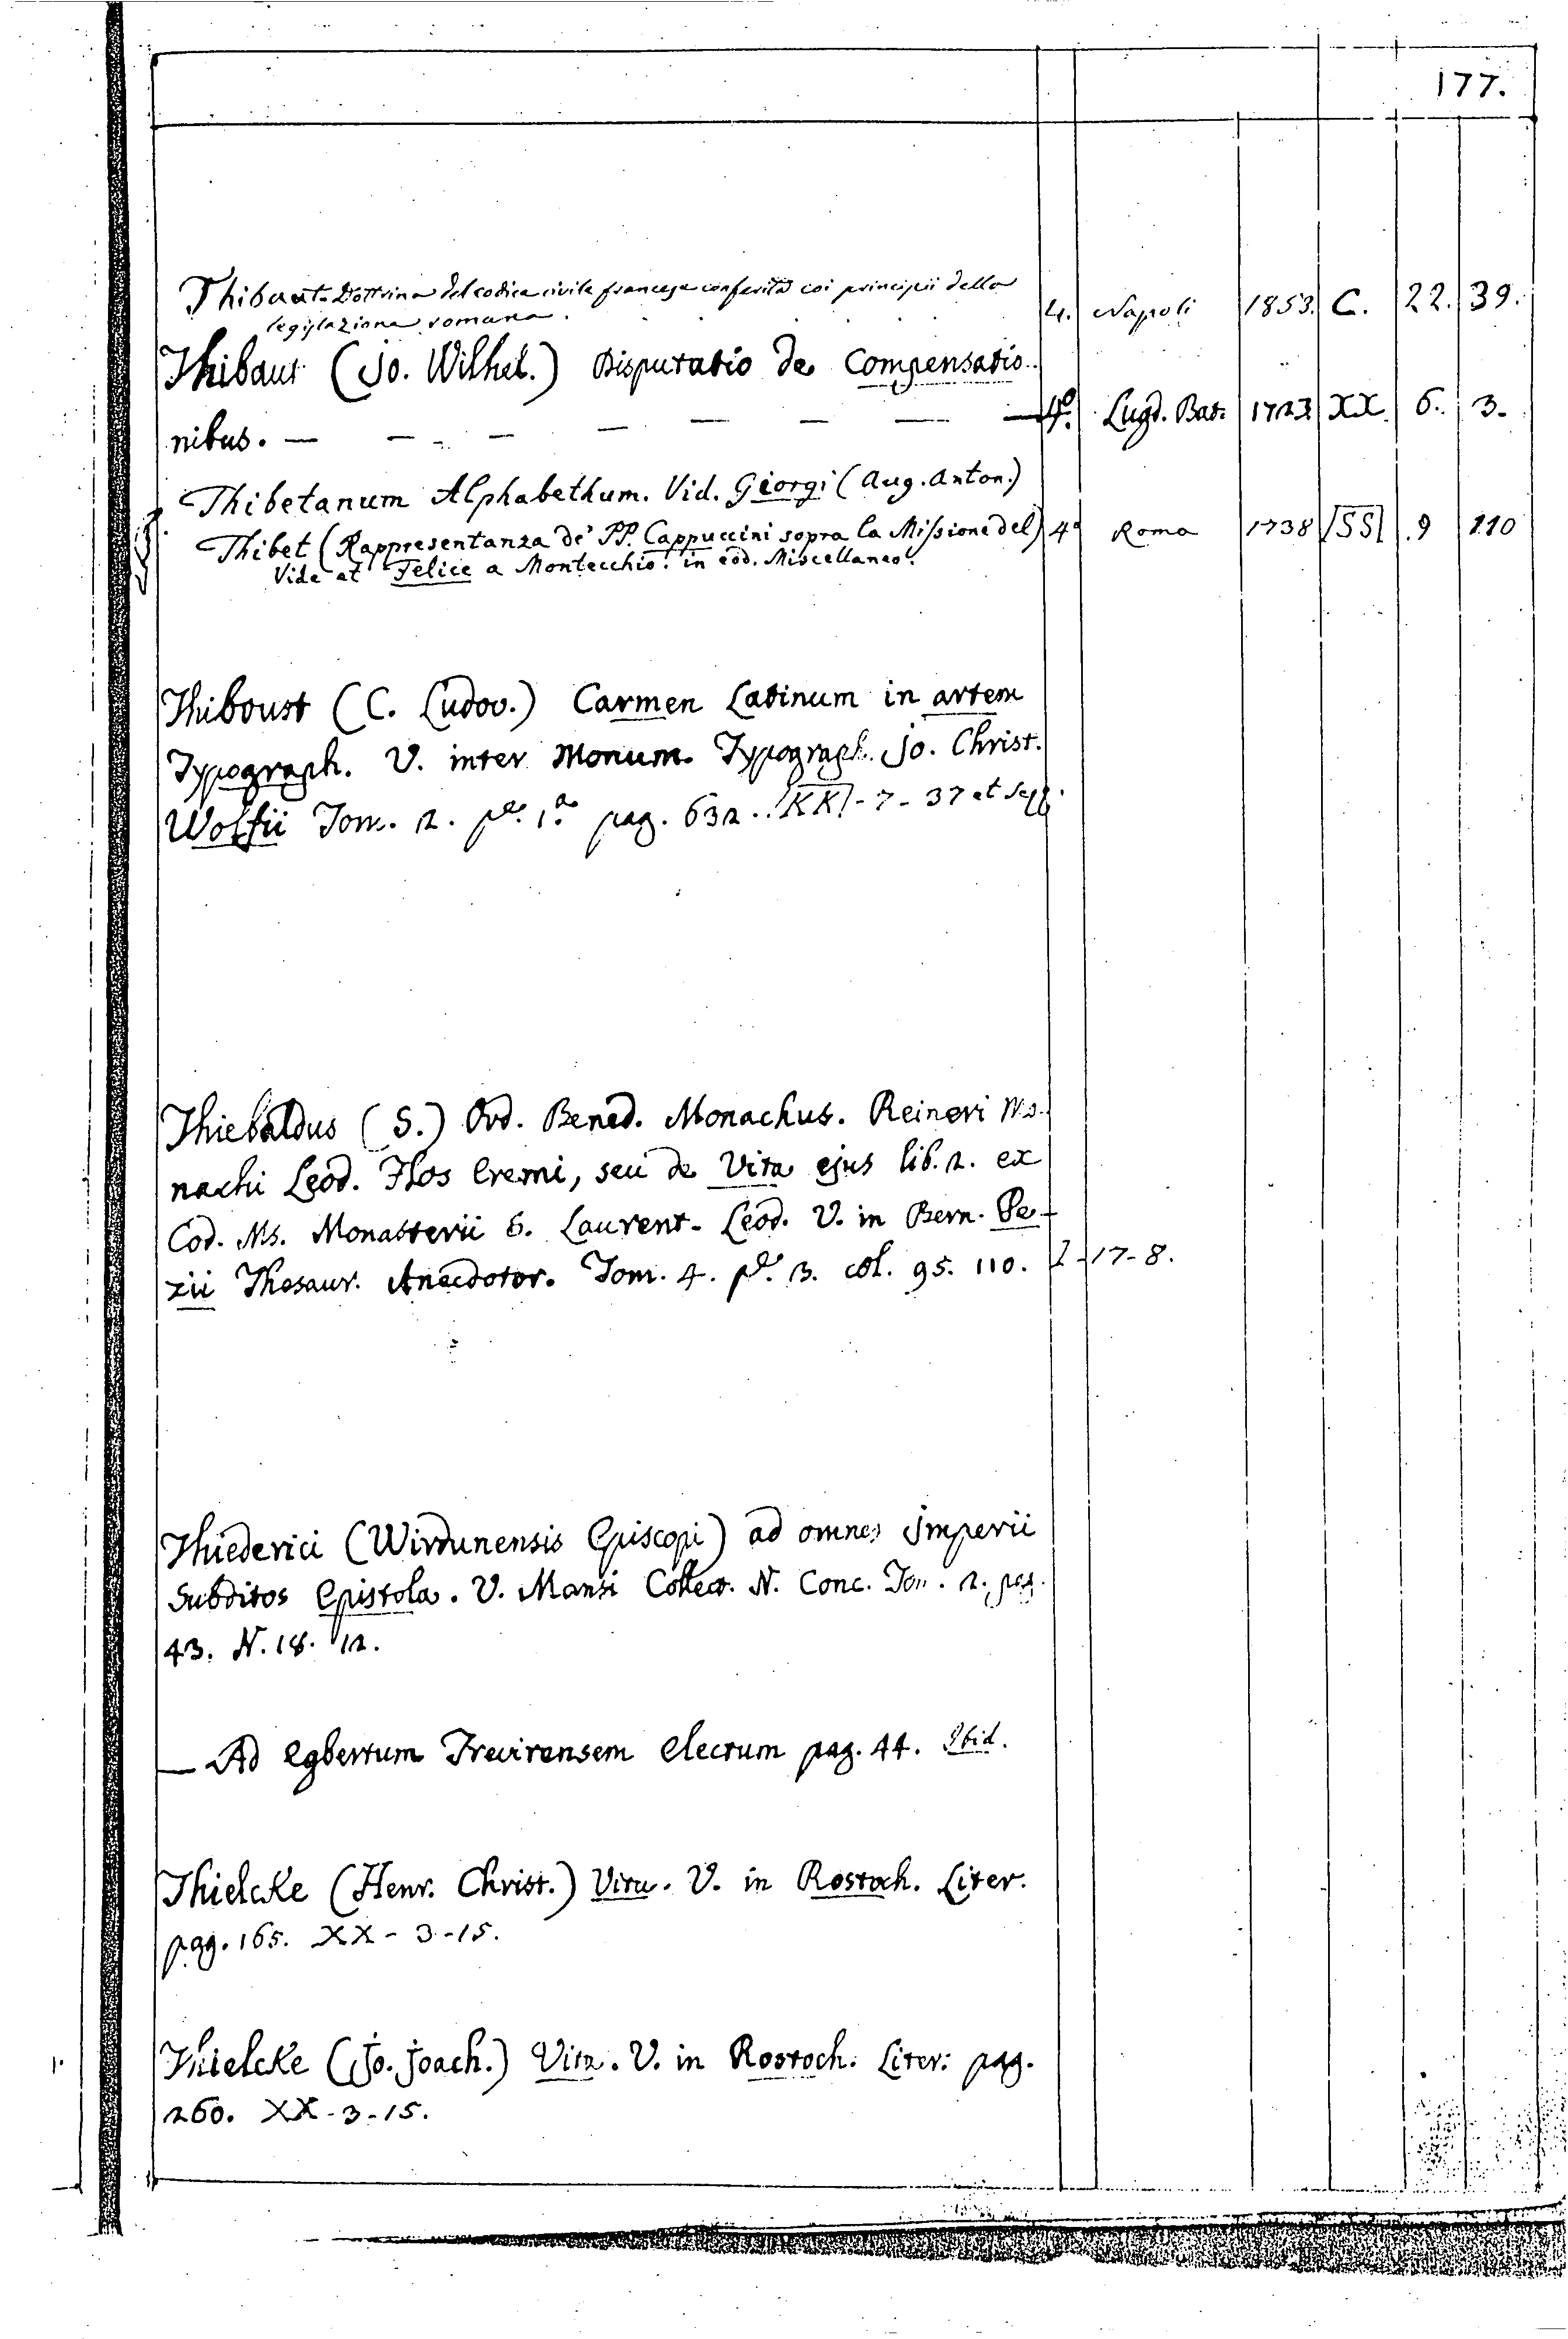 177.
Thibaut. Dottrina del codice civile francese conferita coi principii della
legislazione romana. 4. Napoli 1853. C. 22. 39.
Thibaut (Jo. Wilhel.) Disputatio de Compensatio-
nibus. — — — — — — — — 4.º Lugd. Bat. 1723 XX. 6. 3.
Thibetanum Alphabethum. Vid. Giorgi (Aug. Anton.)
Thibet (Rappresentanza de' PP. Cappuccini sopra la Missione del) 4º Roma 1738 SS 9 110
Vide et Felice a Montecchio. in eod. Miscellaneo.
Thiboust (C. Ludov.) Carmen Latinum in artem
Typograph. V. inter Monum. Typograph. Jo. Christ.
Wolfii Tom. 2. pe. 1.a pag. 632. KK - 7 - 37 et seqq.
Thiebaldus (S.) Ord. Bened. Monachus. Reineri Mo-
nachi Leod. Flos Eremi, seu de Vita ejus lib. 2. ex
Cod. Ms. Monasterii S. Laurent. Leod. V. in Bern. Pe-
zii Thesaur. Anecdotor. Tom. 4. pe. 3. col. 95. 110. I - 17 - 8.
Thiederici (Wirdunensis Episcopi) ad omnes Imperii
Subditos Epistola. V. Mansi Collect. N. Conc. Tom. 2. pag.
43. N. 18. 12.
— Ad Egbertum Trevirensem Electum pag. 44. Ibid.
Thielcke (Henr. Christ.) Vita. V. in Rostoch. Liter.
pag. 165. XX - 3 - 15.
Thielcke (Jo. Joach.) Vita. V. in Rostoch. Liter. pag.
260. XX - 3 - 15.